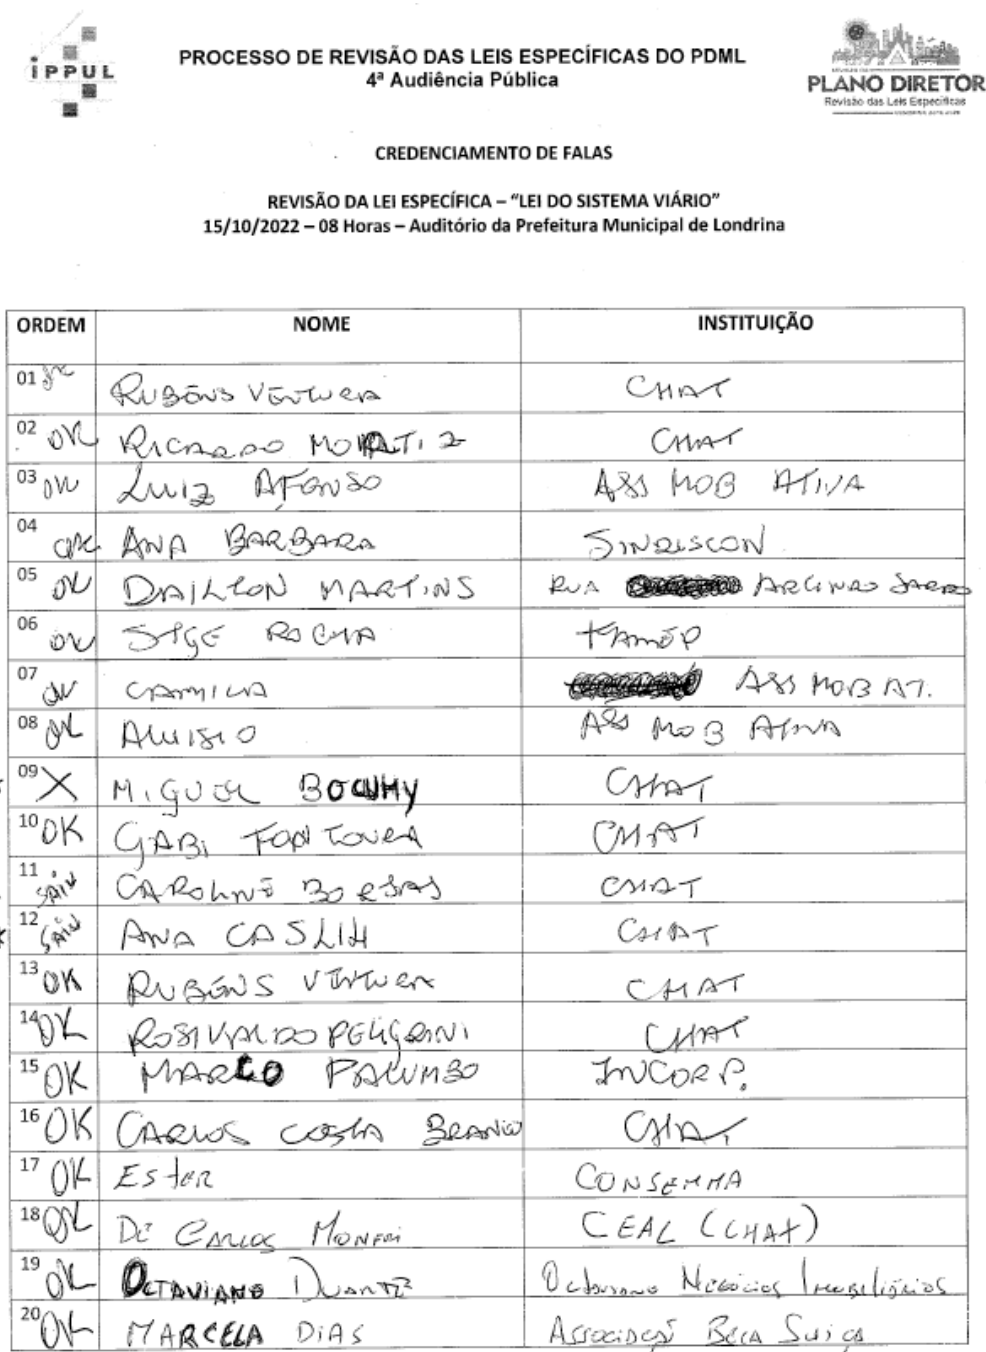 IPPUL
PROCESSO DE REVISÃO DAS LEIS ESPECÍFICAS DO PDML
4ª Audiência Pública
PLANO DIRETOR
Revisão das Leis Específicas
CREDENCIAMENTO DE FALAS
REVISÃO DA LEI ESPECÍFICA – “LEI DO SISTEMA VIÁRIO”
15/10/2022 – 08 Horas – Auditório da Prefeitura Municipal de Londrina
ORDEM NOME INSTITUIÇÃO
01 RUBENS VENTURA CHAT
02 OK RICARDO CHAT
03 OK LUIZ AFONSO ASS MOB ATIVA
04 OK ANA BARBARA SINDUSCON
05 OK DAILTON MARTINS RUA
06 OK ROCHA
07 OK CAMILA ASS MOB AT.
08 OK ALUISIO ASS MOB ATIVA
09 X MIGUEL CHAT
10 OK GABI FONTOURA CHAT
11 SAIU CAROLINE CHAT
12 SAIU ANA CHAT
13 OK RUBENS VENTURA CHAT
14 OK ROSIVALDO PELIGRINI CHAT
15 OK MARCO PALUMBO INCORP.
16 OK CARLOS COSTA BRANCO CHAT
17 OK ESTER CONSEMMA
18 OK CARLOS CEAL (CHAT)
19 OK OCTAVIANO DUARTE Octaviano Negócios Imobiliários
20 OK MARCELA DIAS Associação Bela Suiça